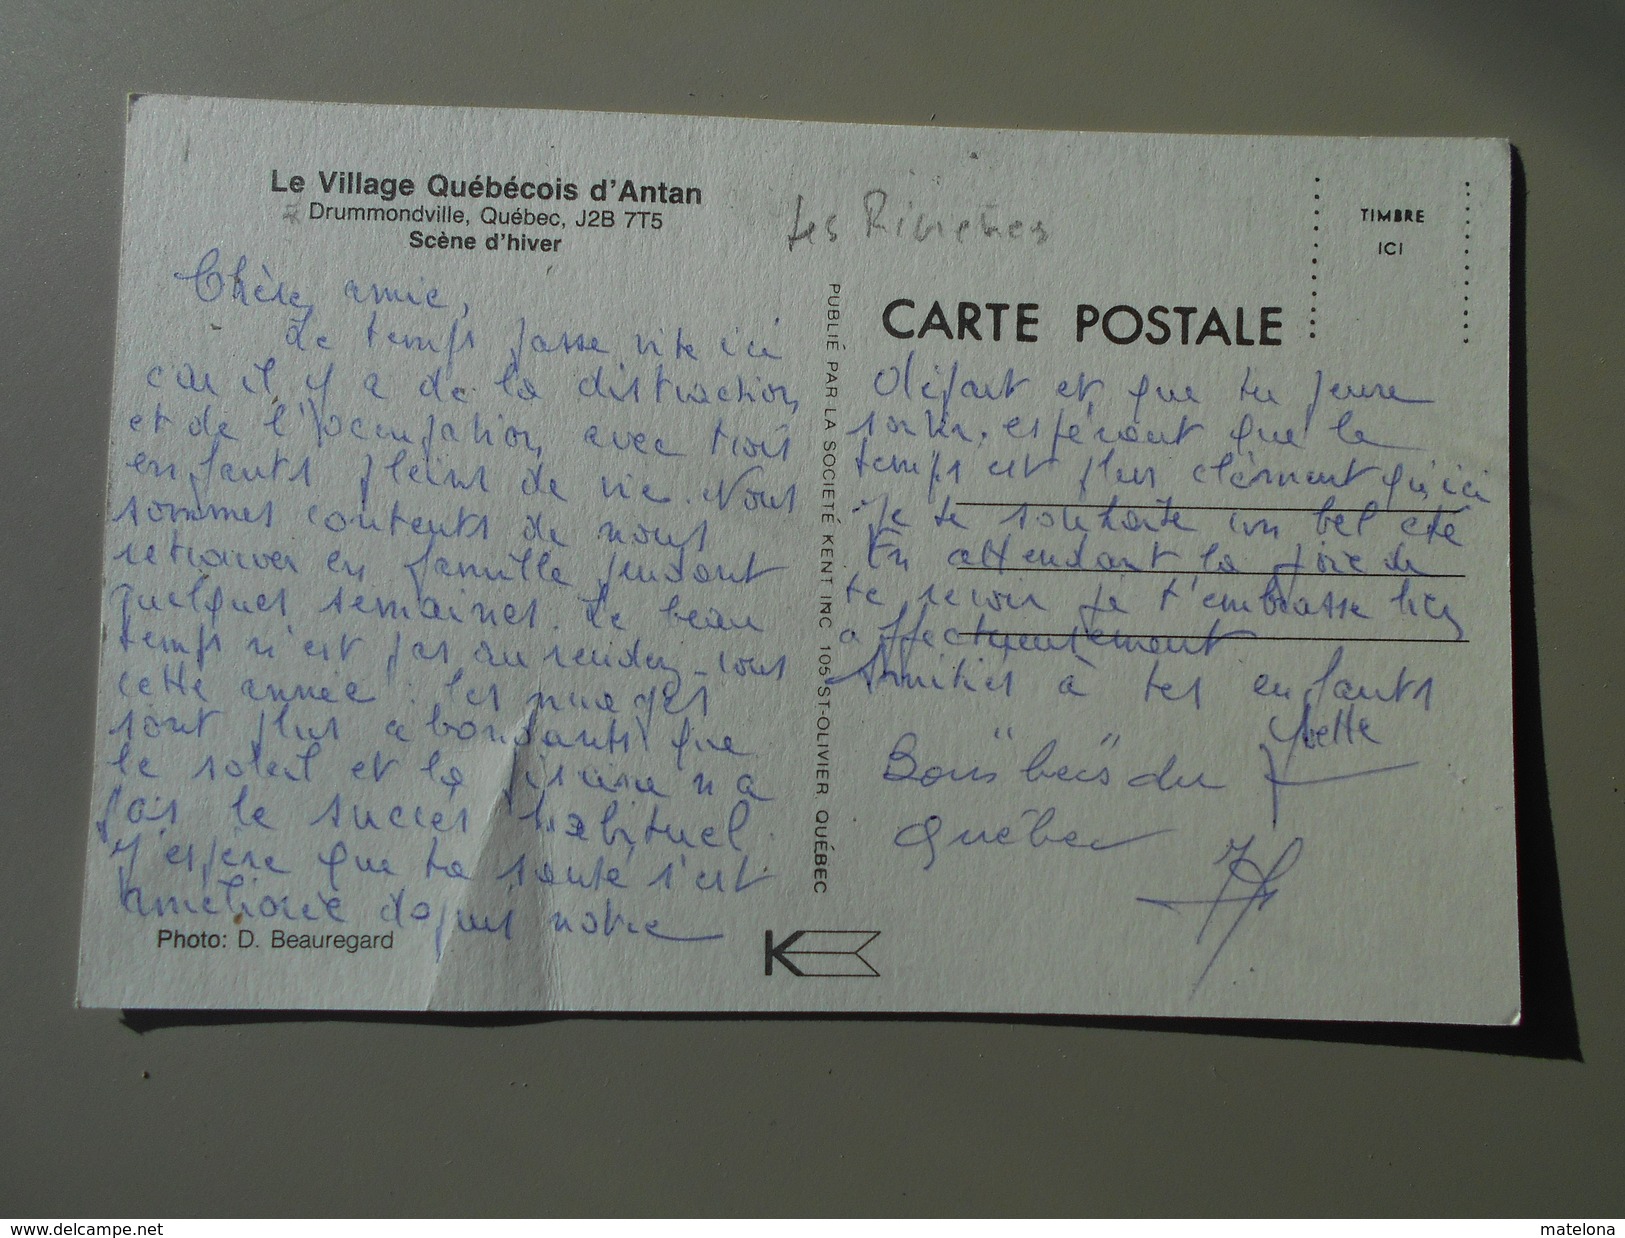 Le Village Québécois d'Antan
Drummondville, Québec, J2B 7T5
Scène d'hiver
Chère amie,
Le temps passe vite ici
car il y a de la distraction
et de l'occupation avec trois
enfants pleins de vie. Nous
sommes contents de nous
retrouver en famille pendant
quelques semaines. Le beau
temps n'est pas au rendez-vous
cette année : les nuages
sont plus abondants que
le soleil et la piscine n'a
pas le succès habituel.
J'espère que ta santé s'est
améliorée depuis notre
Photo: D. Beauregard
PUBLIÉ PAR LA SOCIETÉ KENT INC 105 ST-OLIVIER QUÉBEC
Les
TIMBRE
ICI
CARTE POSTALE
départ et que tu peux
sortir. espérant que le
temps est plus clément qu'ici
je te souhaite un bel été
En attendant la joie de
te revoir je t'embrasse bien
affectueusement
Amitiés à tes enfants
Yvette
Bons "becs" du
Québec
K
www.delcampe.net
matelona